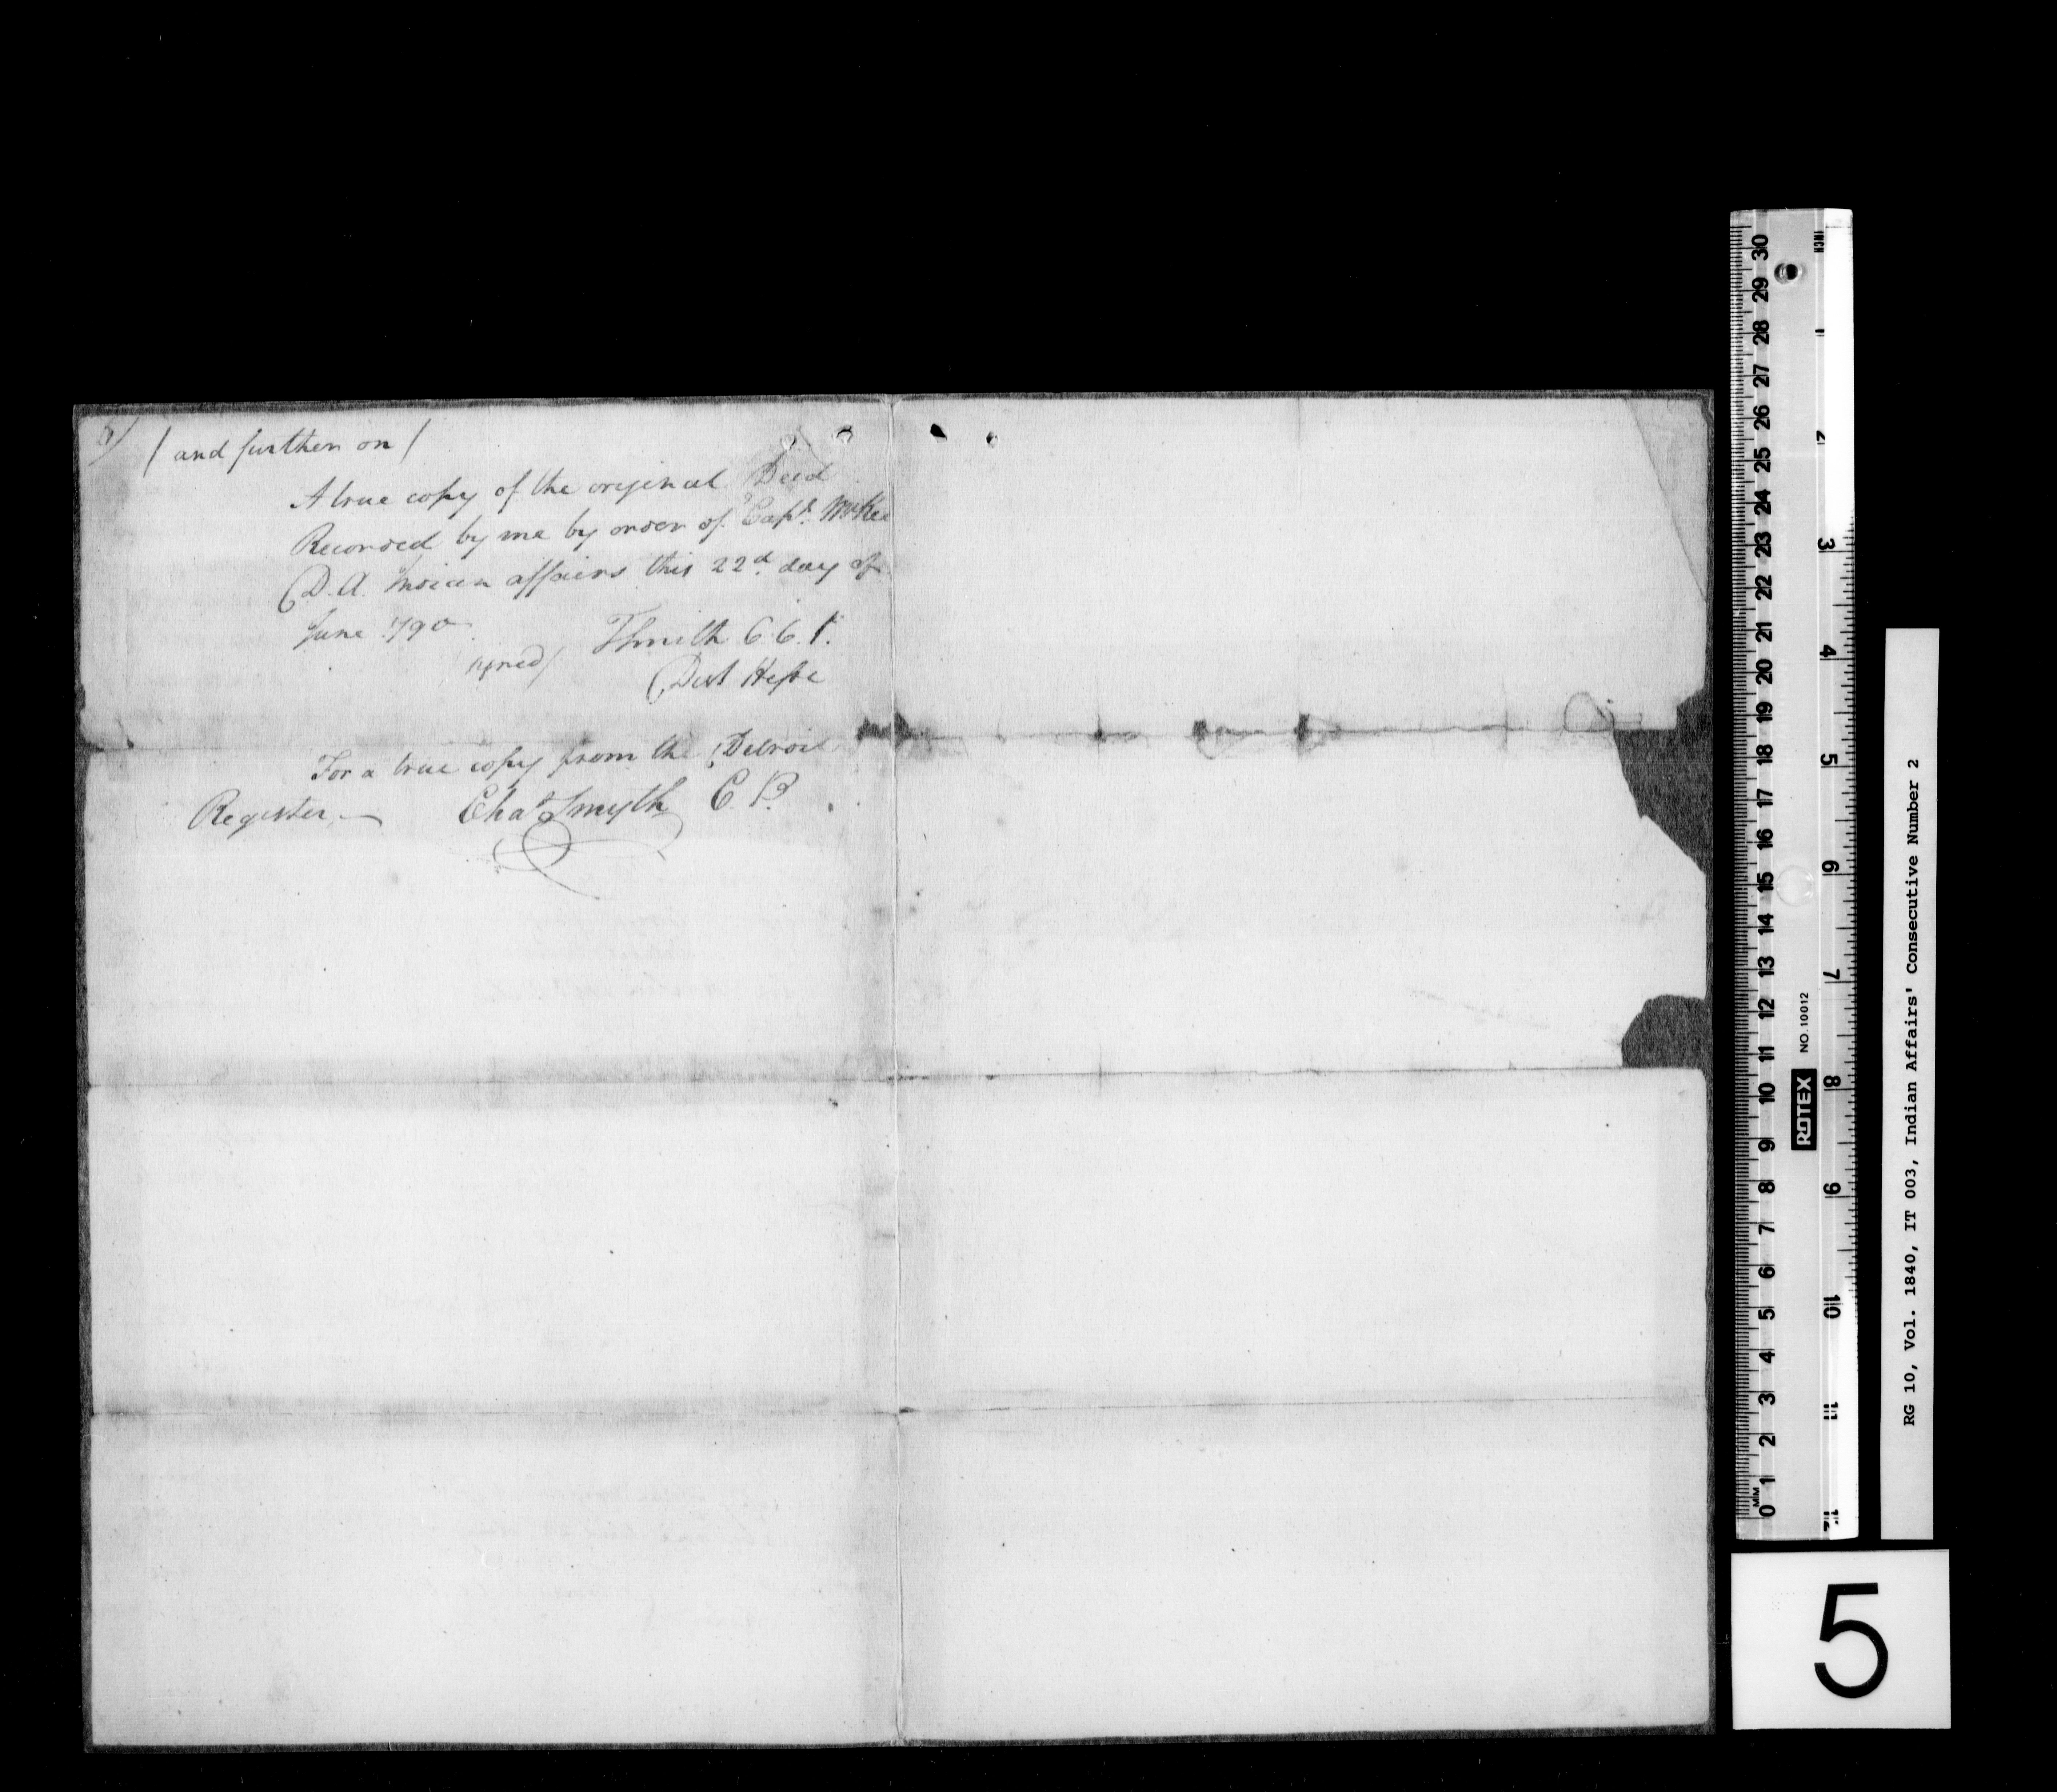 6)
/ and further on /
A true copy of the original Deed
Recorded by me by order of Capt. McKee
D. A. Indian affairs this 22d. day of
June 1790.
signed/ TSmith C. C. P.
Dist Hesse
For a true copy from the Detroit
Register,— Chas Smyth C. P.
RG 10, Vol. 1840, IT 003, Indian Affairs' Consecutive Number 2
INCH
1
2
3
4
5
6
7
8
9
10
11
12
30
29
28
27
26
25
24
23
22
21
20
19
18
17
16
15
14
13
12
11
10
9
8
7
6
5
4
3
2
1
0
MM
ROTEX
NO. 10012
5